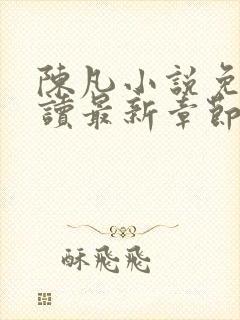 陳凡小說免
讀最新章節
酥飛飛